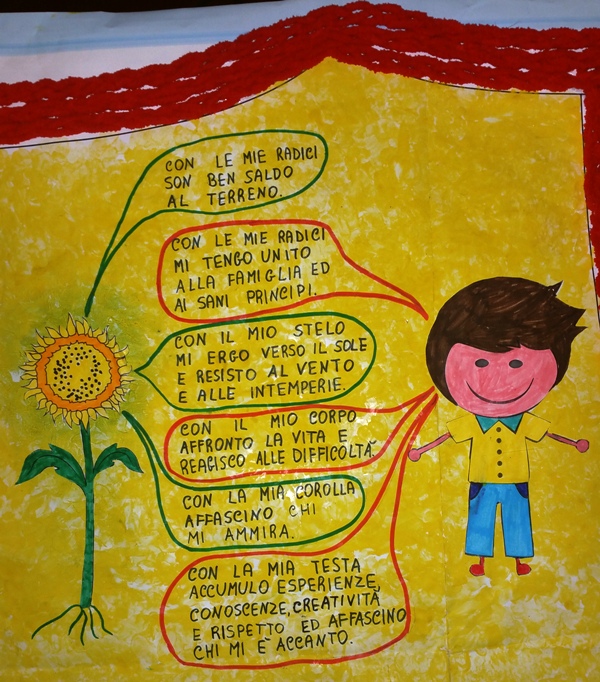 CON LE MIE RADICI
SON BEN SALDO
AL TERRENO.
CON LE MIE RADICI
MI TENGO UNITO
ALLA FAMIGLIA ED
AI SANI PRINCIPI.
CON IL MIO STELO
MI ERGO VERSO IL SOLE
E RESISTO AL VENTO
E ALLE INTEMPERIE.
CON IL MIO CORPO
AFFRONTO LA VITA E
REAGISCO ALLE DIFFICOLTÀ.
CON LA MIA COROLLA
AFFASCINO CHI
MI AMMIRA.
CON LA MIA TESTA
ACCUMULO ESPERIENZE,
CONOSCENZE, CREATIVITÀ
E RISPETTO ED AFFASCINO
CHI MI È ACCANTO.